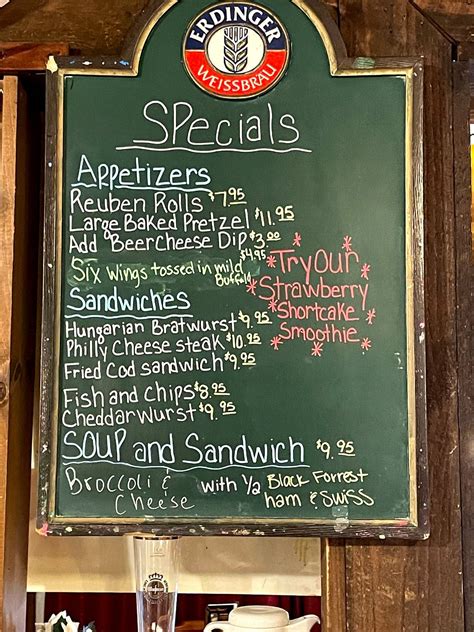 ERDINGER
WEISSBRÄU
Specials
Appetizers
Reuben Rolls $7.95
Large Baked Pretzel $11.95
Add Beer Cheese Dip $3.00
Six Wings tossed in mild $4.95
Buffalo
Sandwiches
Hungarian Bratwurst $9.95
Philly Cheese steak $10.95
Fried Cod sandwich $9.95
Fish and Chips $8.95
Cheddarwurst $9.95
Try Our
Strawberry
Shortcake
Smoothie
Soup and Sandwich $9.95
Broccoli &
Cheese
with 1/2 Black Forrest
ham & Swiss